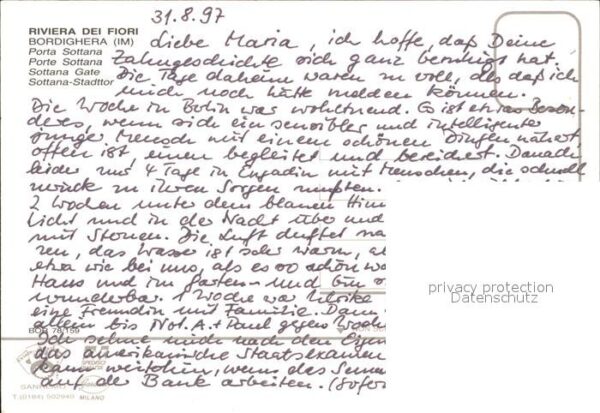 31.8.97
RIVIERA DEI FIORI
BORDIGHERA (IM)
Porta Sottana
Porte Sottana
Sottana Gate
Sottana-Stadttor
Liebe Maria, ich hoffe, daß Deine
Zahngeschichte sich ganz beruhigt hat.
Die Tage daheim waren zu voll, als daß ich
mich noch hätte melden können.
Die Woche in Berlin war wohltuend. Es ist etwas Beson-
deres, wenn sich ein sensibler und intelligenter
junger Mensch mit einem schönen Dingen nähert,
offen ist, einen begleitet und bereichert. Danach
leider nur 4 Tage in Engadin mit Menschen, die schnell
zurück zu ihren Sorgen mußten.
2 Wochen unter dem blauen Him
Licht und in der Nacht über und
mit Sternen. Die Luft duftet na
ren, das Wasser ist sehr warm, al
etwa wie bei uns, als es so schön wa
Haus und im Garten - und bin
wunderbar. 1 Woche war Ulrike
eine Freundin mit Familie. Dann
allein bis Not. A. + Paul gegen Woche
Ich sehne mich nach den
das amerikanische Staatsexamen
kann weiterhin, wenn das Semes
auf der Bank arbeiten. (Sofer
privacy protection
Datenschutz
BOR 78/159
SANREMO
T. (0184) 502940
MILANO